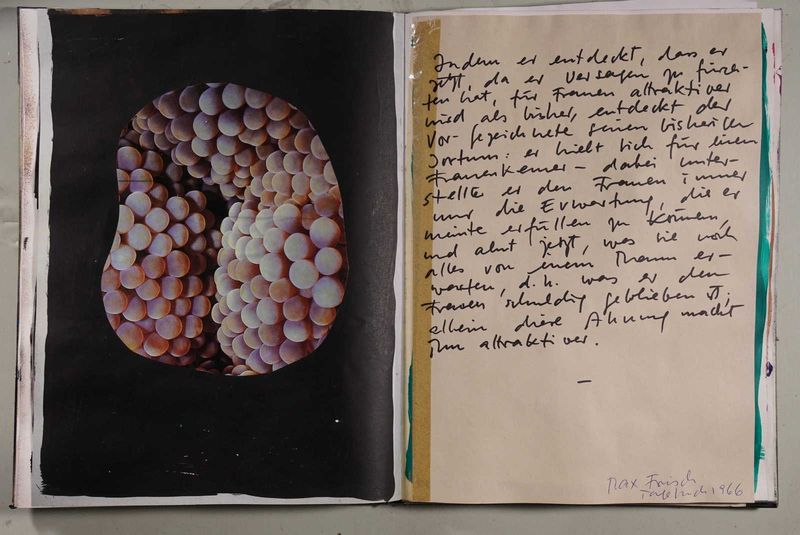 Indem er entdeckt, dass er
jetzt, da er Versagen zu fürch-
ten hat, für Frauen attraktiver
wird als bisher, entdeckt der
Vor-Gezeichnete seinen bisherigen
Irrtum: er hielt sich für einen
Frauenkenner – dabei unter-
stellte er den Frauen immer
nur die Erwartung, die er
meinte erfüllen zu können,
und ahnt jetzt, was sie noch
alles von einem Mann er-
warten, d.h. was er den
Frauen schuldig geblieben ist;
allein diese Ahnung macht
ihn attraktiver.
–
Max Frisch
Tagebuch 1966